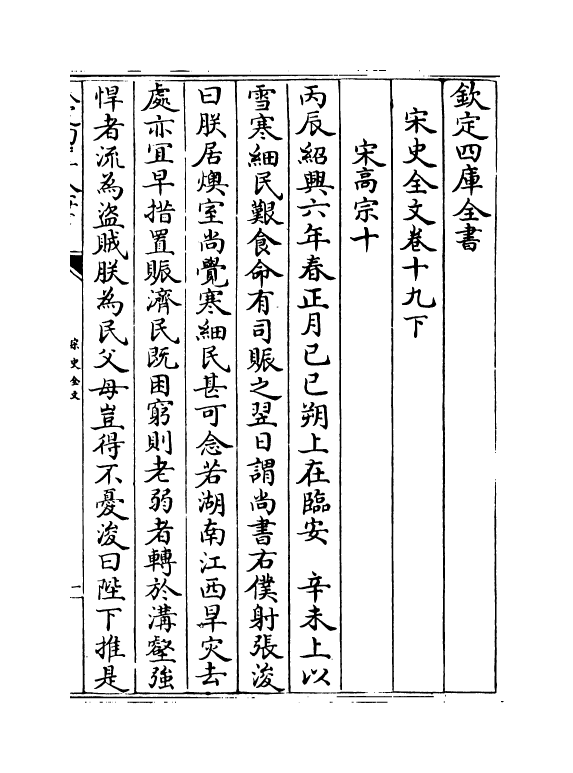 欽定四庫全書
宋史全文卷十九下
宋高宗十
丙辰紹興六年春正月己巳朔上在臨安　辛未上以
雪寒細民艱食命有司賑之翌日謂尚書右僕射張浚
曰朕居燠室尚覺寒細民甚可念若湖南江西旱災去
處亦宜早措置賑濟民既困窮則老弱者轉於溝壑強
悍者流為盜賊朕為民父母豈得不憂浚曰陛下推是
宋史全文